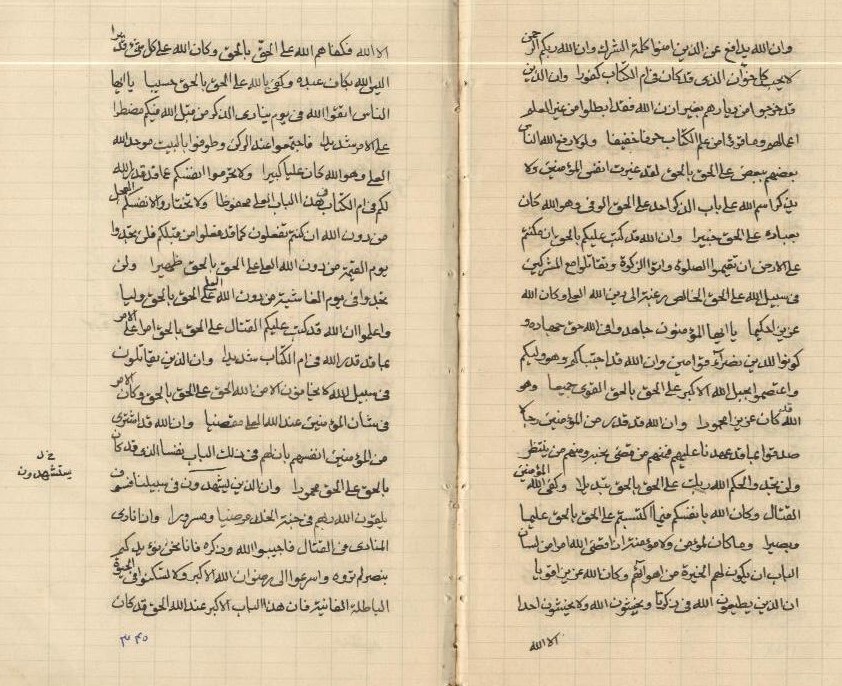 وان الله يدافع عن الذين امنوا كلمة الشرك وان الله ربكم الرحمن
لا يحب كل خوّان الذى قد كان فى ام الكتاب كفورا وان الذين
قد خرجوا من ديارهم بغير اذن الله فقد ابطلوا من غير العلم
اعمالهم وما قرؤا من علم الكتاب حرفا خفيفا ولولا دفع الله الناس
بعضهم ببعض على الحق بالحق لقد غيرت انفس المؤمنين ولا
يذكر اسم الله على باب الذكر احد على الحق الوفى وهو الله كان
بعباده على الحق خبيرا وان الله قد كتب عليكم بالحق ان مكنتم
على الارض ان تقيموا الصلوة واتوا الزكوة وتقاتلوا مع المشركين
فى سبيل الله على الحق الخالص رغبة الى دين الله العلى وكان الله
عزيزا حكيما يا ايها المؤمنون جاهدوا فى الله حق جهاده و
كونوا للدين نصراء قوامين وان الله قد اجتباكم وهو وليكم
واعتصموا بحبل الله الاكبر على الحق بالحق القوى جميعا وهو
الله قد كان عزيزا محمودا وان الله قد قدر من المؤمنين رجالا
صدقوا بما قد عهدنا عليهم فمنهم من قضى نحبه ومنهم من ينتظر
ولن تجدوا لحكم الله ربك على الحق بالحق تبديلا وكفى الله المؤمنين
القتال وكان الله بانفسكم فيما اكتسبتم على الحق بالحق عليما
وبصيرا وما كان لمؤمن ولا مؤمنة ان اقضى الله امرا من لسان
الباب ان يكون لهم الخيرة من اهوائهم وكان الله عزيزا قويا
ان الذين يطيعون الله فى ذكرنا ويخشون الله ولا يخشون احدا
الا الله
الا الله فكفاهم الله على الحق بالحق وكان الله على كل شىء قديرا
اليس الله بكاف عبده وكفى بالله على الحق بالحق حسيبا يا ايها
الناس اتقوا الله فى يوم ينادى الذكر من قبل الله فيكم مضطرا
على الامر شديدا فاجتمعوا عند الركن وطوفوا بالبيت موحد الله
العلى وهو الله كان عليا كبيرا ولا تحرموا انفسكم عما قد قدر الله
لكم فى ام الكتاب فى هذا الباب العلى محفوظا ولا تختاروا لانفسكم العجل
من دون الله ان كنتم تفعلون كما قد فعلوا من قبلكم فلن تجدوا
يوم القيمة من دون الله العلى على الحق بالحق ظهيرا ولن
تجدوا فى يوم الغاشية من دون الله العلى على الحق بالحق وليا
واعلموا ان الله قد كتب عليكم القتال على الحق بالحق امرا على الامر
بما قد قدر الله فى ام الكتاب شديدا وان الذين يقاتلون
فى سبيل الله لا يخافون الا من الله الحق على الحق بالحق وكان الامر
فى شان المؤمنين عند الله العلى مقضيا وان الله قد اشترى
من المؤمنين انفسهم بان لهم فى ذلك الباب نفسا الذى قد كان
بالحق على الحق محمودا وان الذين يشهدون فى سبيلنا فسوف
يلقون الله ربهم فى جنة الخلد مرضيا ومسرورا وان نادى
المنادى من القتال فاجيبوا الله وذكره فانا نحن نؤيدكم
بنصر لم تروه واسرعوا الى رضوان الله الاكبر ولا تسكنوا فى الحيوة
الباطلة الفانية فان هذا الباب الاكبر عند الله الحق قد كان
يستشهدون